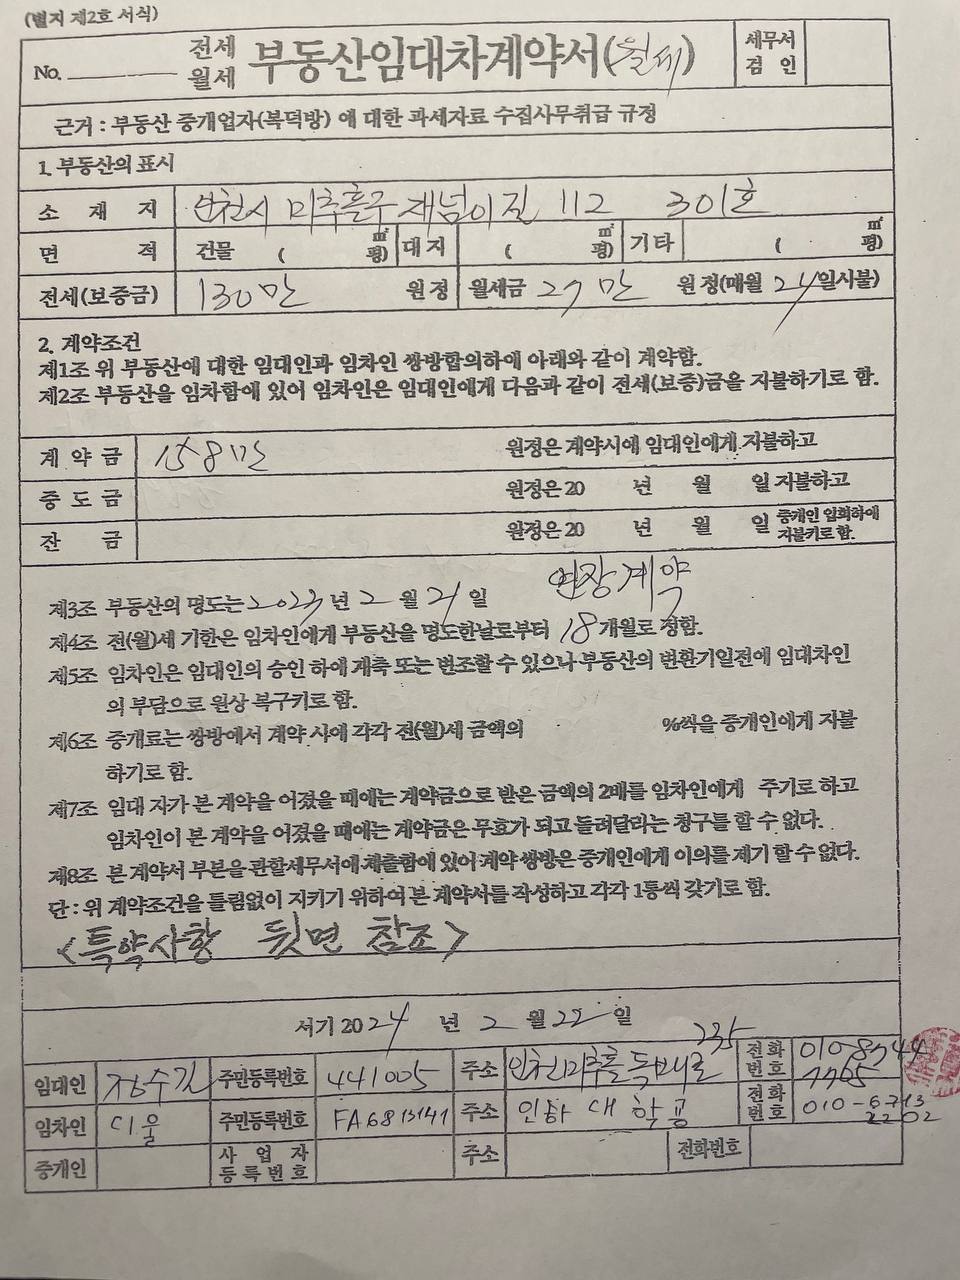 (별지 제2호 서식)
No. 전세 월세 부동산임대차계약서(월세) 세무서 검인
근거 : 부동산 중개업자(복덕방) 에 대한 과세자료 수집사무취급 규정
1. 부동산의 표시
소 재 지 인천시 미추홀구 재넘이길 112 301호
면 적 건물 ( ㎡ 평) 대지 ( ㎡ 평) 기타 ( ㎡ 평)
전세(보증금) 130만 원정 월세금 27만 원정(매월 24일시불)
2. 계약조건
제1조 위 부동산에 대한 임대인과 임차인 쌍방합의하에 아래와 같이 계약함.
제2조 부동산을 임차함에 있어 임차인은 임대인에게 다음과 같이 전세(보증)금을 지불하기로 함.
계 약 금 158만 원정은 계약시에 임대인에게 지불하고
중 도 금 원정은 20 년 월 일 지불하고
잔 금 원정은 20 년 월 일 중개인 입회하에 지불키로 함.
연장계약
제3조 부동산의 명도는 2023년 2 월 21 일
제4조 전(월)세 기한은 임차인에게 부동산을 명도한날로부터 18개월로 정함.
제5조 임차인은 임대인의 승인 하에 개축 또는 변조할 수 있으나 부동산의 변환기일전에 임대차인
의 부담으로 원상 복구키로 함.
제6조 중개료는 쌍방에서 계약 사에 각각 전(월)세 금액의 %씩을 중개인에게 지불
하기로 함.
제7조 임대 자가 본 계약을 어겼을 때에는 계약금으로 받은 금액의 2배를 임차인에게 주기로 하고
임차인이 본 계약을 어겼을 때에는 계약금은 무효가 되고 돌려달라는 청구를 할 수 없다.
제8조 본 계약서 부본을 관할세무서에 제출함에 있어 계약 쌍방은 중개인에게 이의를 제기 할 수 없다.
단 : 위 계약조건을 틀림없이 지키기 위하여 본 계약서를 작성하고 각각 1통씩 갖기로 함.
<특약사항 뒷면 참조>
서기 2024 년 2 월 22 일
임대인 주민등록번호 441005 주소 인천미추홀 독배로 235 전화번호 010-8744
임차인 디울 주민등록번호 FA6813141 주소 인하 대 학 공 전화번호 010-6713 2202
중개인 사 업 자 등록번호 주소 전화번호